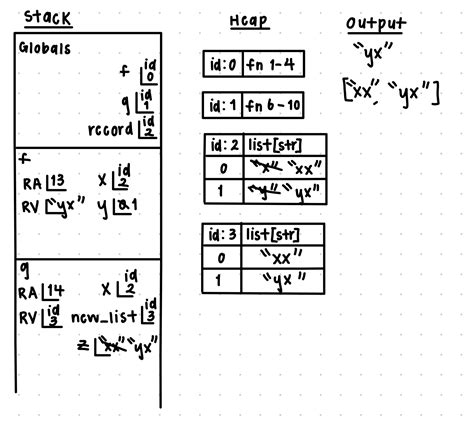 Stack
Globals
f id 0
g id 1
record id 2
f
RA 13 x id 2
RV "yx" y 0 1
g
RA 14 x id 2
RV id 3 new_list id 3
z "xx" "yx"
Heap
id:0 fn 1-4
id:1 fn 6-10
id:2 list[str]
0 "x" "xx"
1 "y" "yx"
id:3 list[str]
0 "xx"
1 "yx"
output
"yx"
["xx", "yx"]